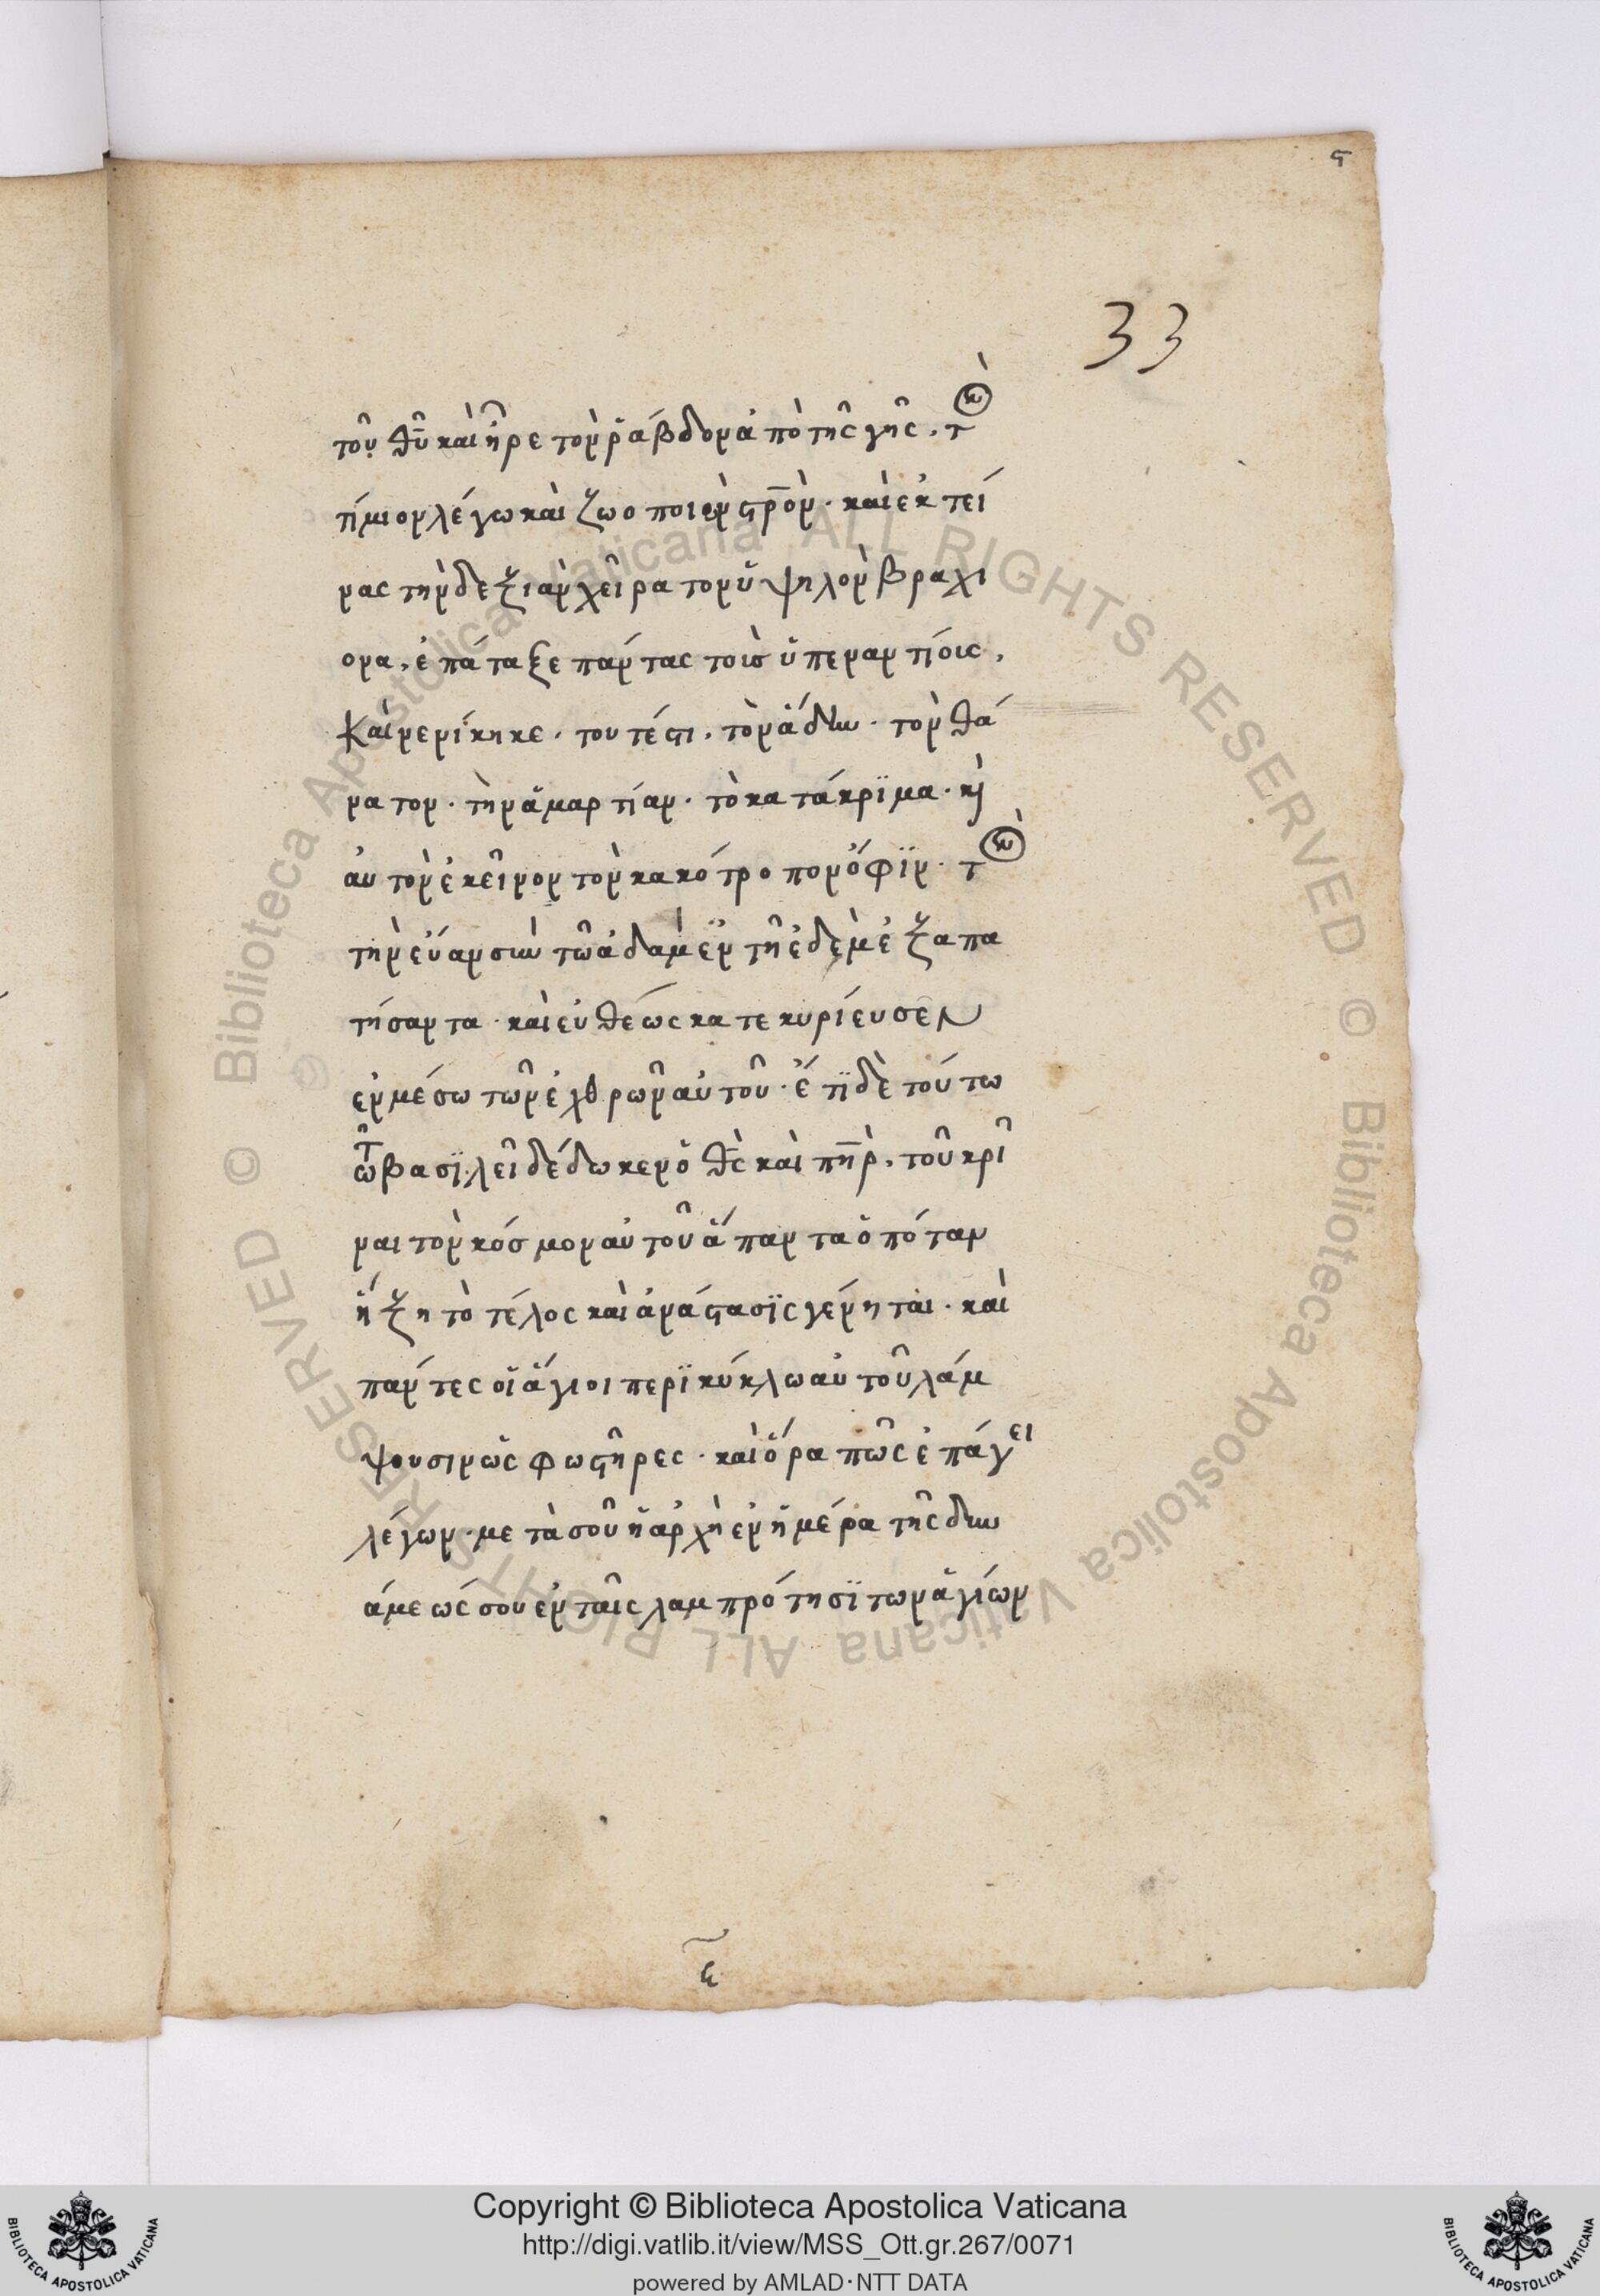 ϛ
33
τοῦ θυ καὶ ἦρε τὸν ῥάβδον ἀπὸ τῆς γῆς. τὸν
τίμιον λέγω καὶ ζωοποιὸν στρον. καὶ ἐκτεί
νας τὴν δεξιὰν χεῖρα τὸν ὑψηλὸν βραχί
ονα, ἐπάταξε πάντας τοῖς ὑπεναντίοις,
Καὶ νενίκηκε. τουτέστι, τὸν ἅδην. τὸν θά
νατον. τὴν ἁμαρτίαν. τὸ κατάκρϊμα. κὶ
αὐτὸν ἐκεῖνον τὸν κακότροπον ὄφϊν. τὸν
τὴν εὔαν σὺν τῶ ἀδὰμ ἐν τῆ ἐδὲμ ἐξαπα
τήσαντα. καὶ εὐθέως κατεκυρίευσεν
ἐν μέσω τῶν ἐχθρῶν αὐτοῦ. ἔτϊ δὲ τούτω
τῶ βασϊλεῖ δέδωκεν ὁ θς καὶ πηρ, τοῦ κρῖ
ναι τὸν κόσμον αὐτοῦ ἅπαντα ὁπόταν
ἥξη τὸ τέλος καὶ ἀνάστασϊς γένηται. καὶ
πάντες οἱ ἅγιοι περϊκύκλω αὐτοῦ λάμ
ψουσιν ὡς φωστῆρες. καὶ ὅρα πῶς ἐπάγει
λέγων. μετὰ σοῦ ἡ ἀρχὴ ἐν ἡμέρα τῆς δυν
άμεώς σου ἐν ταῖς λαμπρότησϊ τῶν ἁγίων
ε
Copyright © Biblioteca Apostolica Vaticana
http://digi.vatlib.it/view/MSS_Ott.gr.267/0071
powered by AMLAD·NTT DATA
BIBLIOTECA APOSTOLICA VATICANA
BIBLIOTECA APOSTOLICA VATICANA
© Biblioteca Apostolica Vaticana ALL RIGHTS RESERVED
© Biblioteca Apostolica Vaticana ALL RIGHTS RESERVED